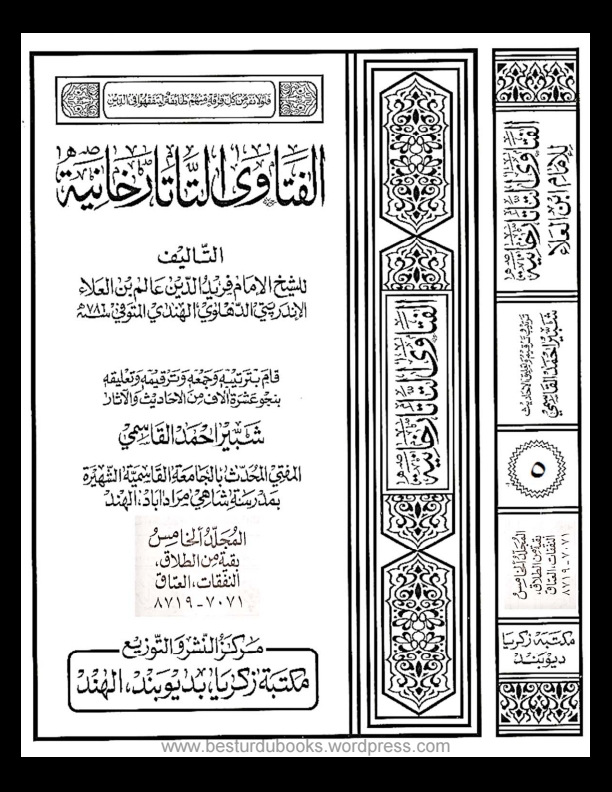 فلولا نفر من كل فرقة منهم طائفة ليتفقهوا في الدين
الفتاوى التاتارخانية
التاليف
للشيخ الامام فريد الدين عالم بن العلاء
الإندريتي الدهلوي الهندي المتوفى سنة ٧٨٦ھ
قام بترتيبه وجمعه وترقيمه وتعليقه
بنحو عشرة الاف من الاحاديث والآثار
شبير احمد القاسمي
المفتي المحدث بالجامعة القاسمية الشهيرة
بمدرسة شاهي مرادآباد، الهند
المجلد الخامس
بقية من الطلاق،
النفقات، العتاق
٧٠٧١ - ٨٧١٩
مركز النشر والتوزيع
مكتبة زكريا، بديوبند، الهند
الفتاوى التاتارخانية
الفتاوى التاتارخانية
للإمام ابن العلاء
شبير احمد القاسمي
٥
المجلد الخامس
بقية من الطلاق،
النفقات، العتاق
٧٠٧١ - ٨٧١٩
مكتبة زكريا
ديوبند
www.besturdubooks.wordpress.com